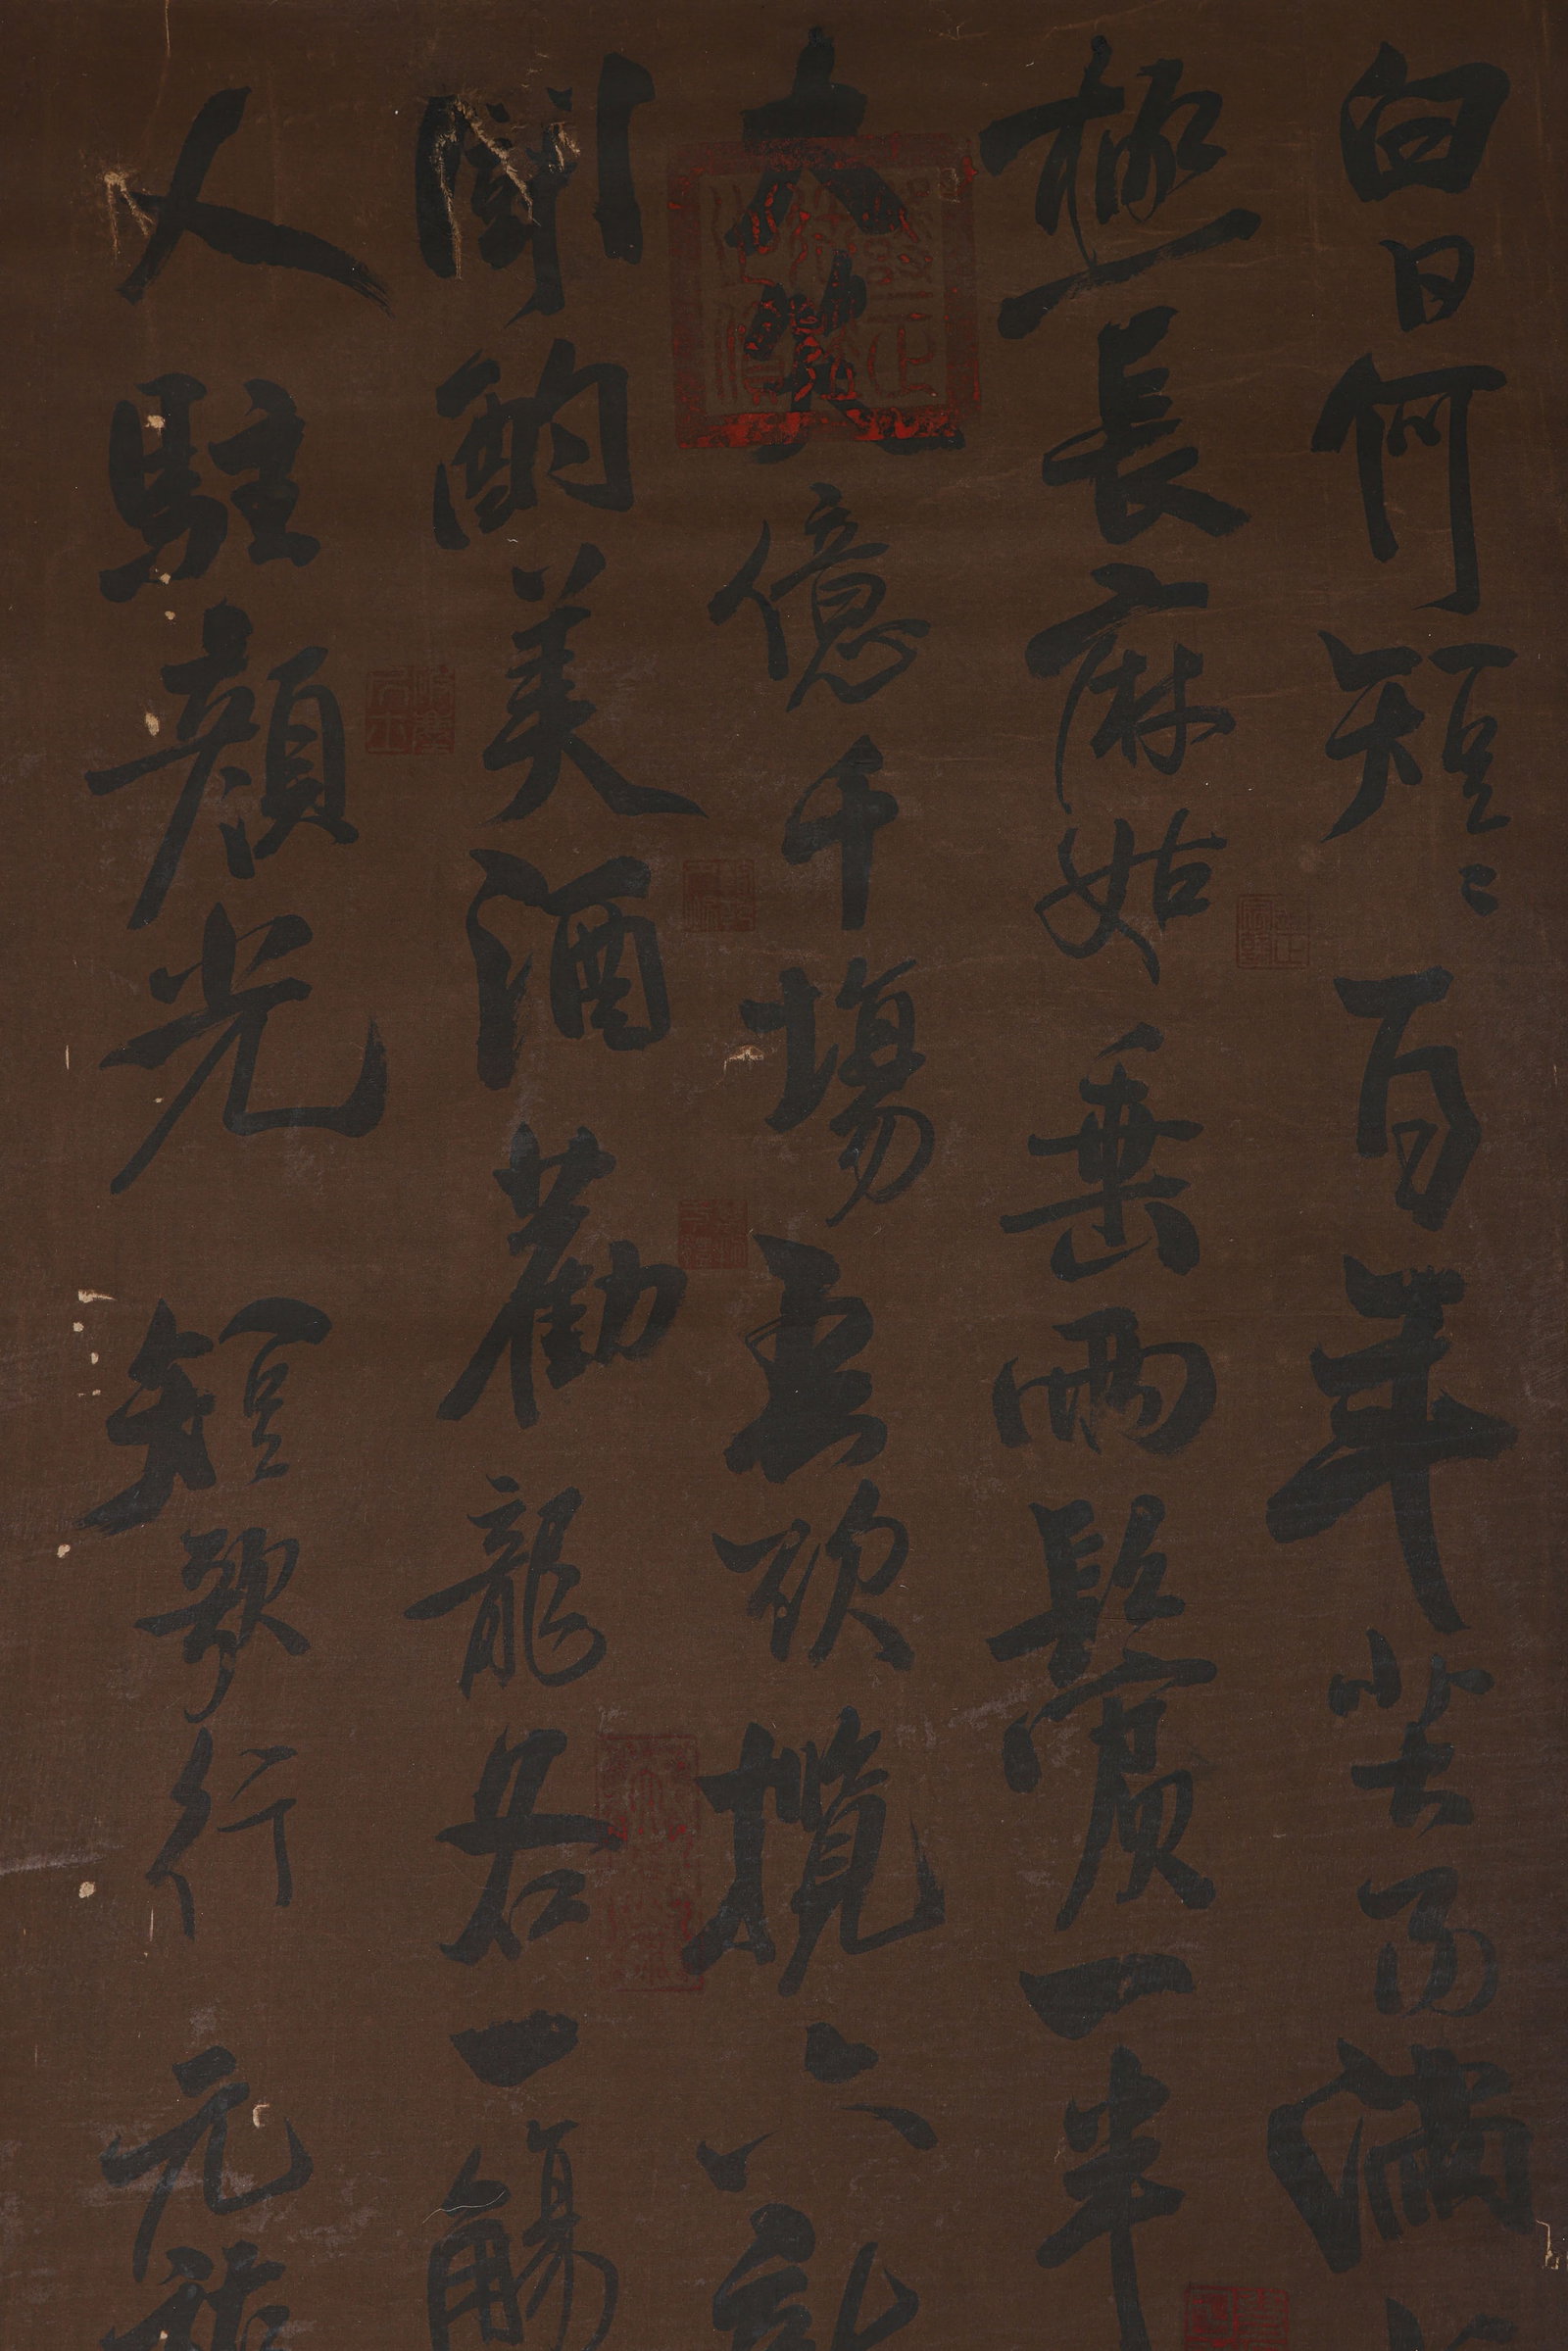 白日何短〻百年苦易滿
極長麻姑垂兩鬢一半
大笑億千場吾欲攬六
酌美酒勸龍各一觴
人駐顏光 短歌行 元祐